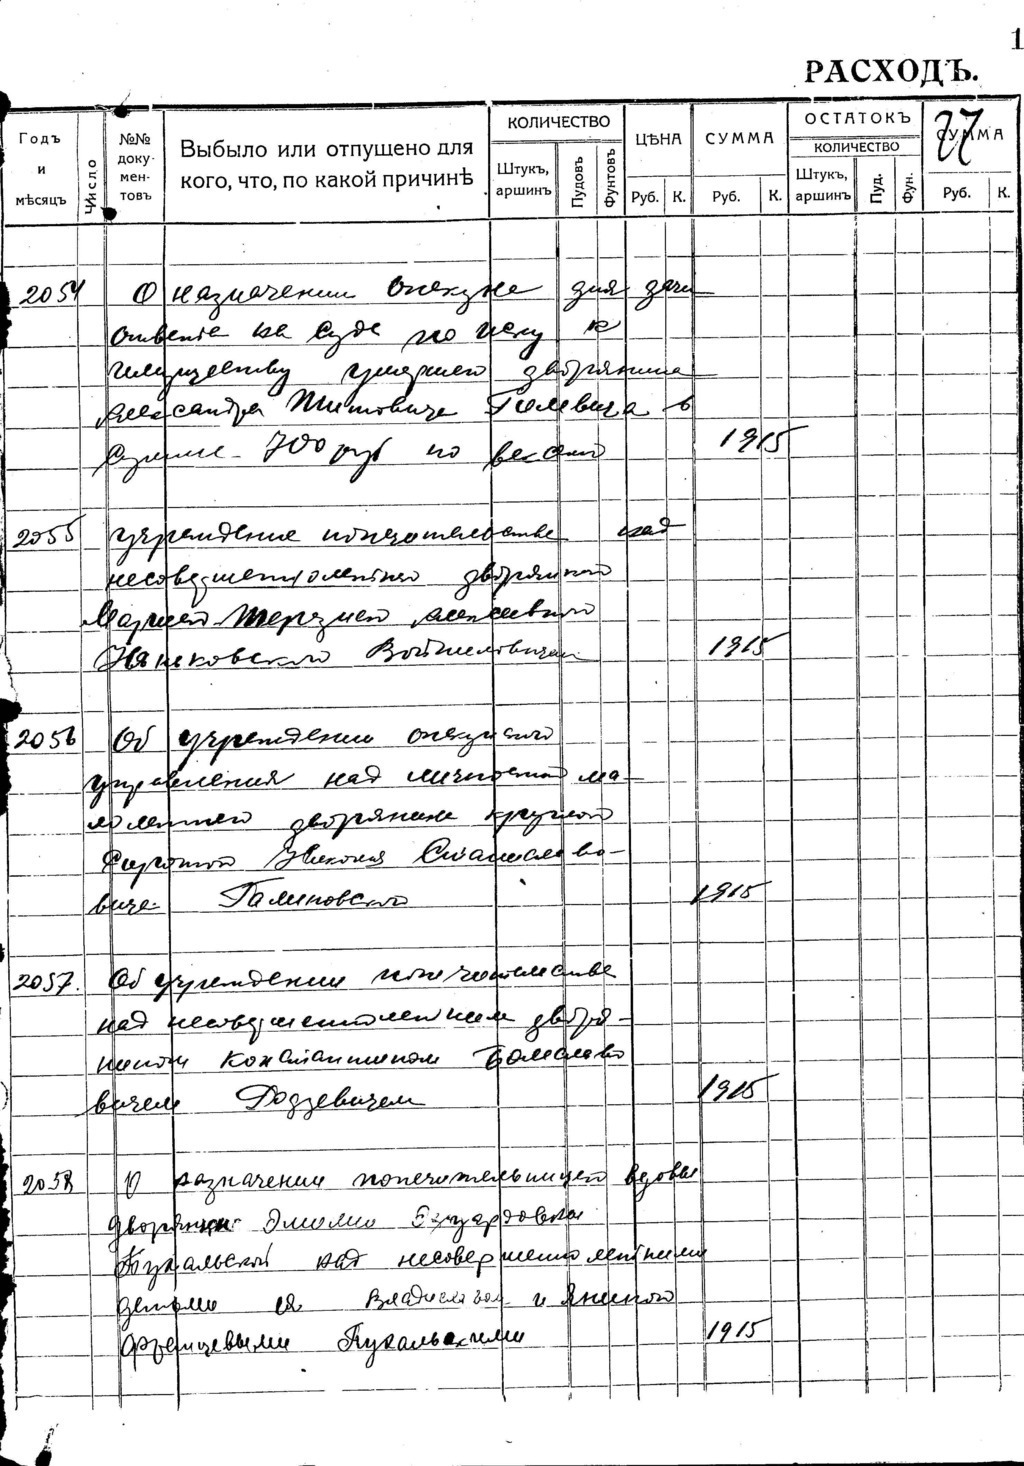 1
РАСХОДЪ.
77
Годъ и мѣсяцъ
Число
№№ доку-мен-товъ
Выбыло или отпущено для кого, что, по какой причинѣ
КОЛИЧЕСТВО
Штукъ, аршинъ
Пудовъ
Фунтовъ
ЦѢНА
Руб. К.
СУММА
Руб. К.
ОСТАТОКЪ
КОЛИЧЕСТВО
Штукъ, аршинъ
Пуд.
Фун.
СУММА
Руб. К.
2054 О назначении опекуна для дачи
ответа на суде по иску к
имуществу умершего дворянина
Александра Титовича в
сумме 700 руб по 1915
2055 учреждение попечительства над
несовершеннолетней дворянкой
Марией-Терезией
1915
2056 Об учреждении опекунского
управления над личностью ма-
лолетнего дворянина круглого
сироты Станиславо-
вича Галиновского 1915
2057. Об учреждении попечительства
над несовершеннолетним дворя-
нином Константином Болеславо
вичем Додзевичем 1915
2058 О назначении попечительницей вдовы
дворянки Эмилии Эдуардовны
Тукальской над несовершеннолетними
детьми ея Владиславом и Яниной
Францевыми Тукальскими 1915